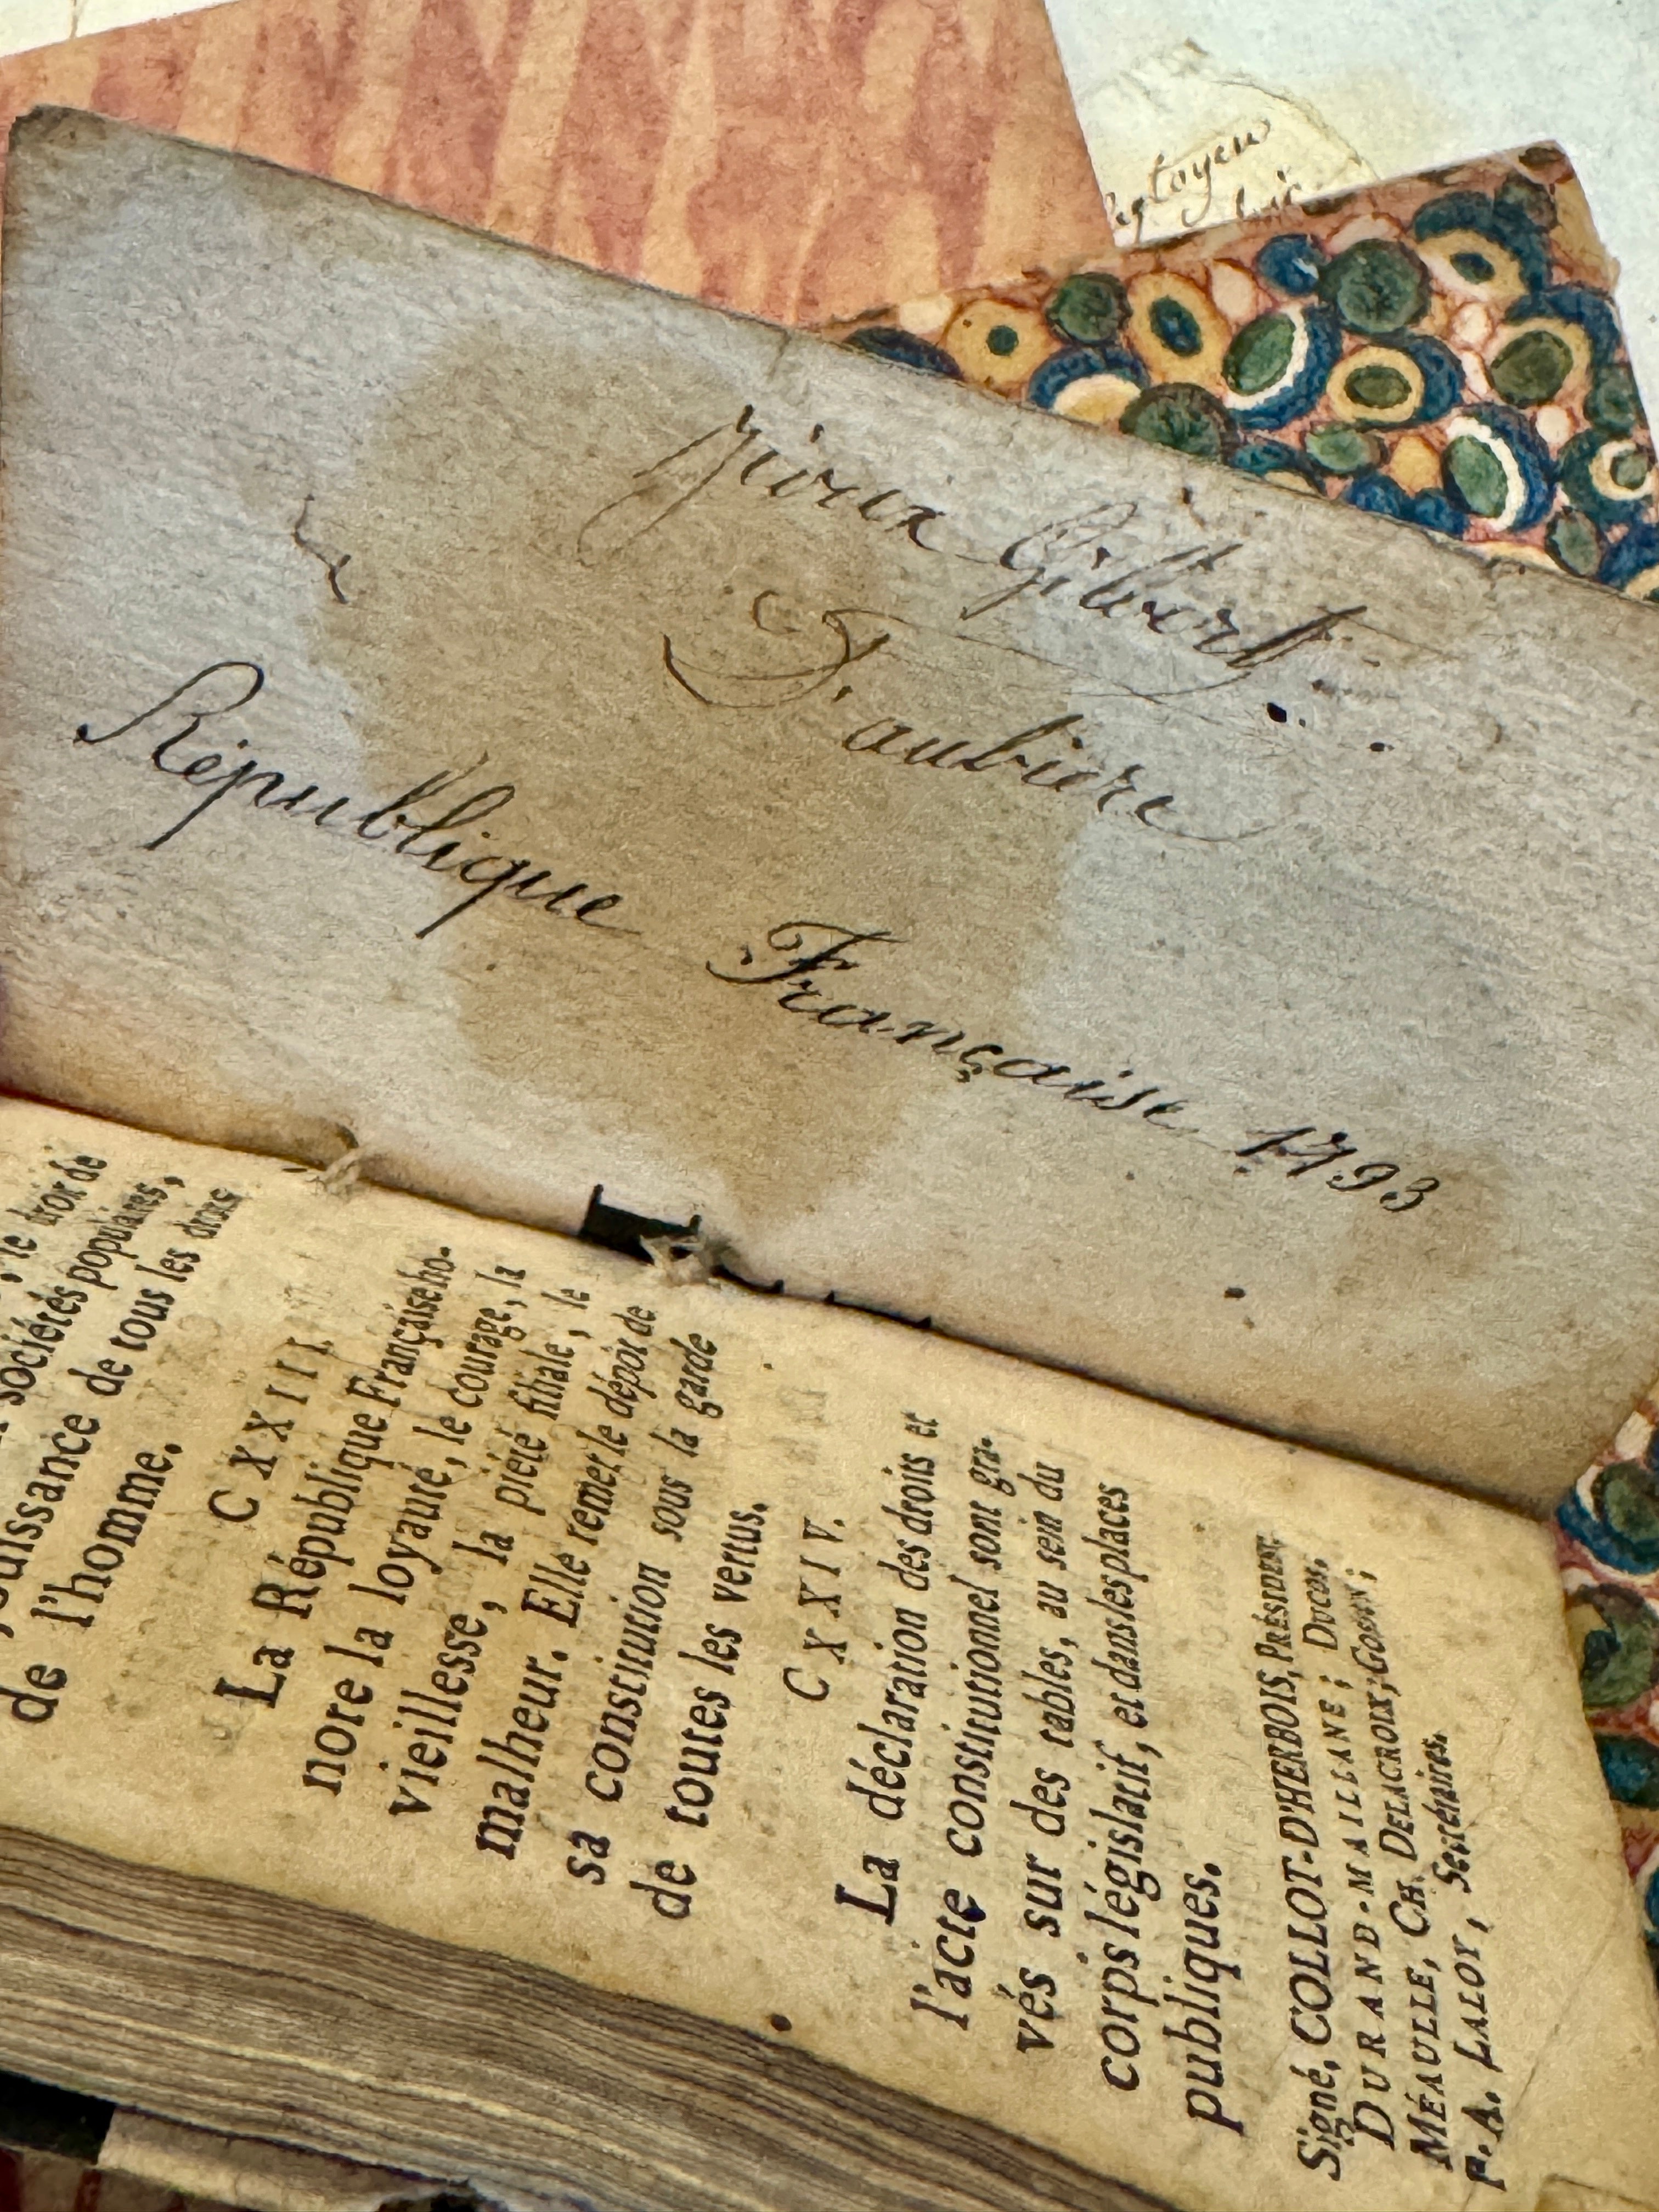 Gilbert
D'aubiere
République Française 1793
le droit de
sociétés populaires,
jouissance de tous les droits
de l'homme.
CXXIII.
La République Française ho-
nore la loyauté, le courage, la
vieillesse, la piété filiale, le
malheur. Elle remet le dépôt de
sa constitution sous la garde
de toutes les vertus.
CXXIV.
La déclaration des droits et
l'acte constitutionnel sont gra-
vés sur des tables, au sein du
corps législatif, et dans les places
publiques.
Signé, COLLOT-D'HERBOIS, PRÉSIDENT
DURAND-MAILLANE; DUCOS,
MÉAULLE, CH. DELACROIX; GOSSIN;
P. A. LALOY, Secrétaires.